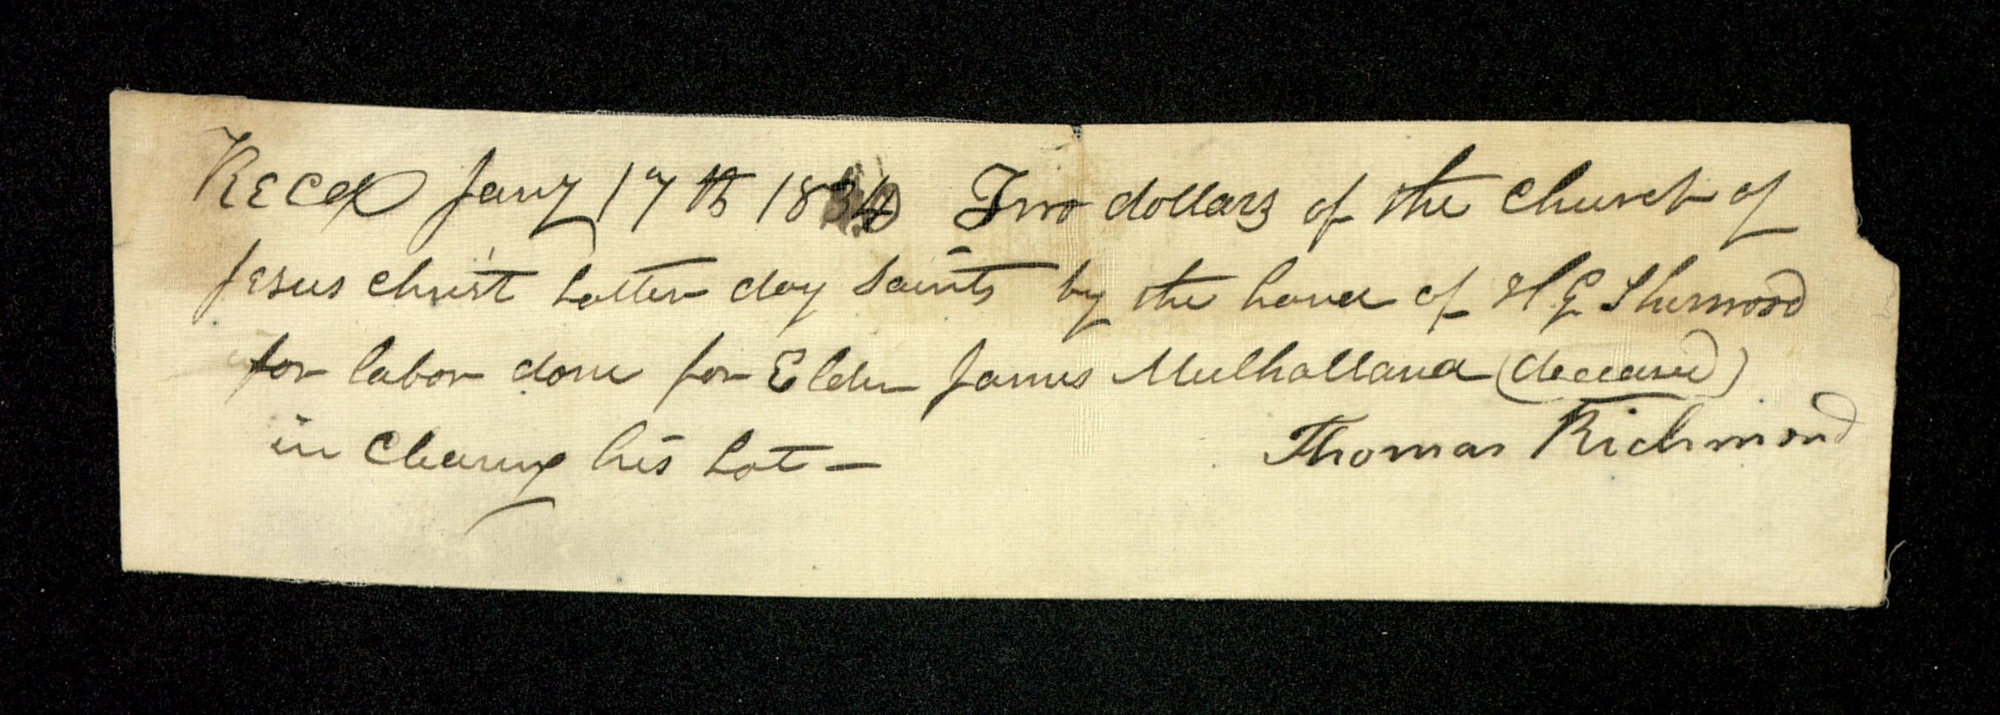 Recd Jany 17th 1840 Two dollars of the Church of
Jesus christ Latter day Saints by the hand of H G Sherwood
for labor done for Elder James Mulholland (deceased)
in Clearing his Lot —
Thomas Richmond